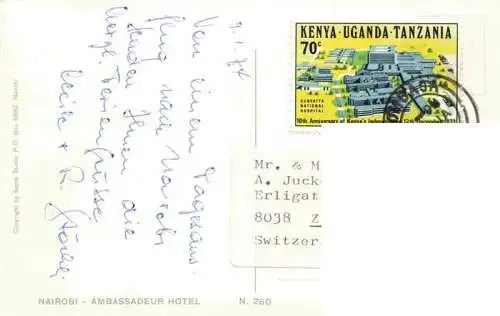 KENYA·UGANDA·TANZANIA
70c
KENYATTA
NATIONAL
HOSPITAL
10th Anniversary of Kenya's
9.1.74
Von einem Tagesaus-
flug nach Nairobi
senden Ihnen die
herzl. Feriengrüsse
Mr. & M
A. Juck
Erligat
8038 Z
Switzer
NAIROBI - AMBASSADEUR HOTEL N. 260
Copyright by Sapra Studio P.O. Box 5882, Nairobi